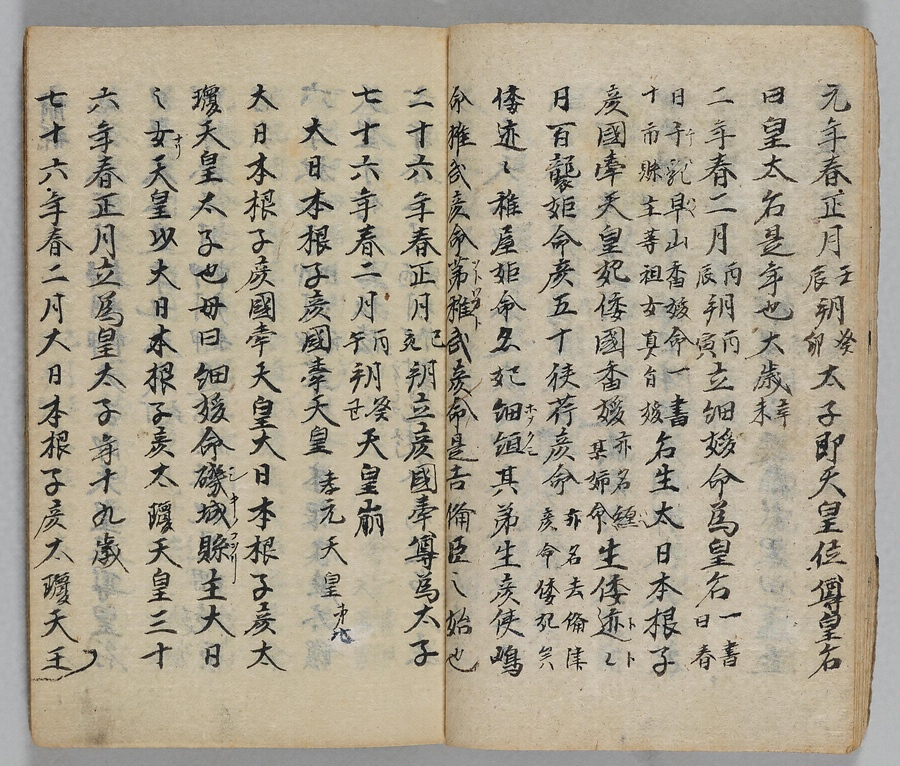 元年春正月壬辰朔癸卯太子即天皇位尊皇后
曰皇太后是年也太歳辛未
二年春二月丙辰朔丙寅立細媛命爲皇后一書曰春
日千乳早山香媛命一書十市縣主等祖女真舌媛后生大日本根子
彦國牽天皇妃倭國香媛亦名絙某姉命生倭迹々
日百襲姫命彦五十狹芹彦命亦名吉備津彦命倭
倭迹々稚屋姫命亦妃絙某弟生彦狹嶋
命稚武彦命弟稚武彦命是吉備臣之始也
二十六年春正月己亥朔立彦國牽尊爲太子
七十六年春二月丙午朔癸丑天皇崩
大日本根子彦國牽天皇 孝元天皇
大日本根子彦國牽天皇大日本根子彦太
瓊天皇太子也母曰細媛命磯城縣主大日
々女天皇以大日本根子彦太瓊天皇三十
六年春正月立爲皇太子年十九歳
七十六年春二月大日本根子彦太瓊天王